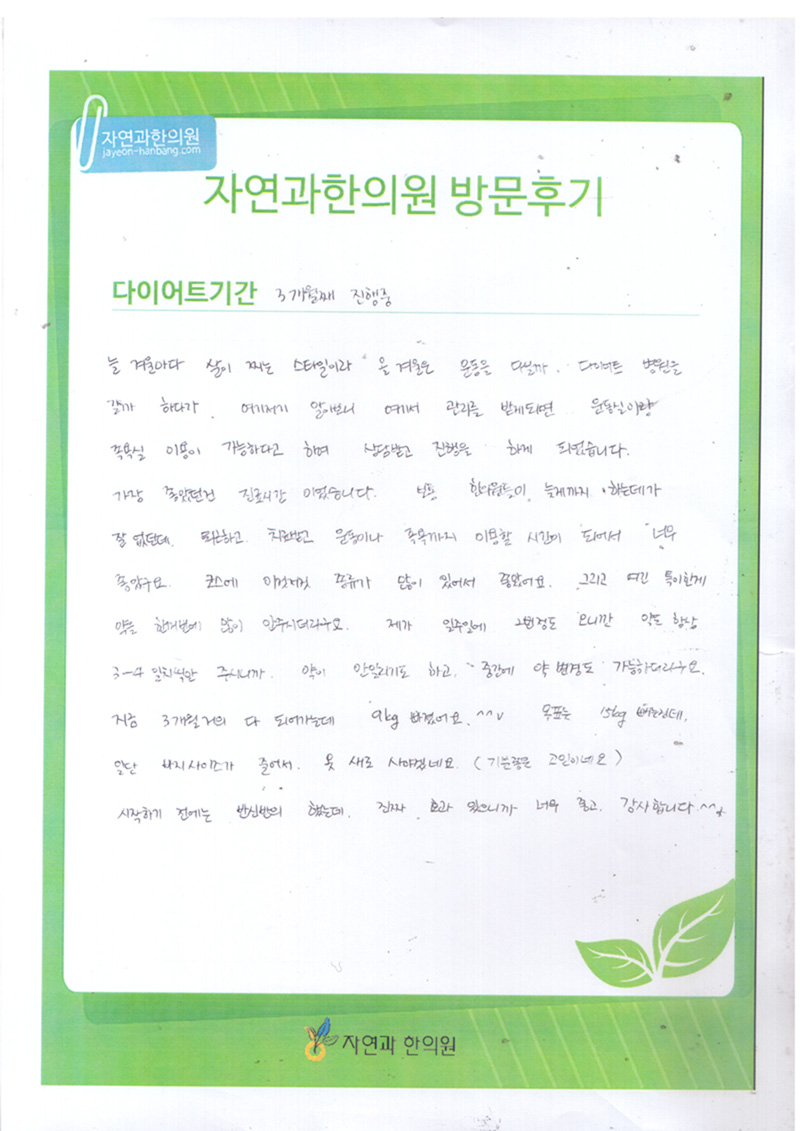 자연과한의원
jayeon-hanbang.com
자연과한의원 방문후기
다이어트기간 3개월째 진행중
늘 겨울마다 살이 찌는 스타일이라 올 겨울은 운동을 다닐까, 다이어트 병원을
갈까 하다가, 여기저기 알아보니 여기서 관리를 받게되면 운동실이랑
족욕실 이용이 가능하다고 하여 상담받고 진행을 하게 되었습니다.
가장 좋았던건 진료시간 이었습니다. 보통 한의원들이 늦게까지 하는데가
잘 없던데, 퇴근하고, 치료받고 운동이나 족욕까지 이용할 시간이 되어서 너무
좋았구요. 코스에 이것저것 종류가 많이 있어서 좋았어요. 그리고 여긴 특이한게
약을 한꺼번에 많이 안주시더라구요. 제가 일주일에 2번정도 오니깐 약도 항상
3-4일치씩만 주시니까. 약이 안밀리기도 하고, 중간에 약 변경도 가능하더라구요.
지금 3개월 거의 다 되어가는데 9kg 빠졌어요.^^v 목표는 15kg 빼는건데,
일단 바지사이즈가 줄어서. 옷 새로 사야겠네요. (기분좋은 고민이네요)
시작하기 전에는 반신반의 했는데, 진짜 효과 있으니까 너무 좋고, 감사합니다.^^
자연과 한의원